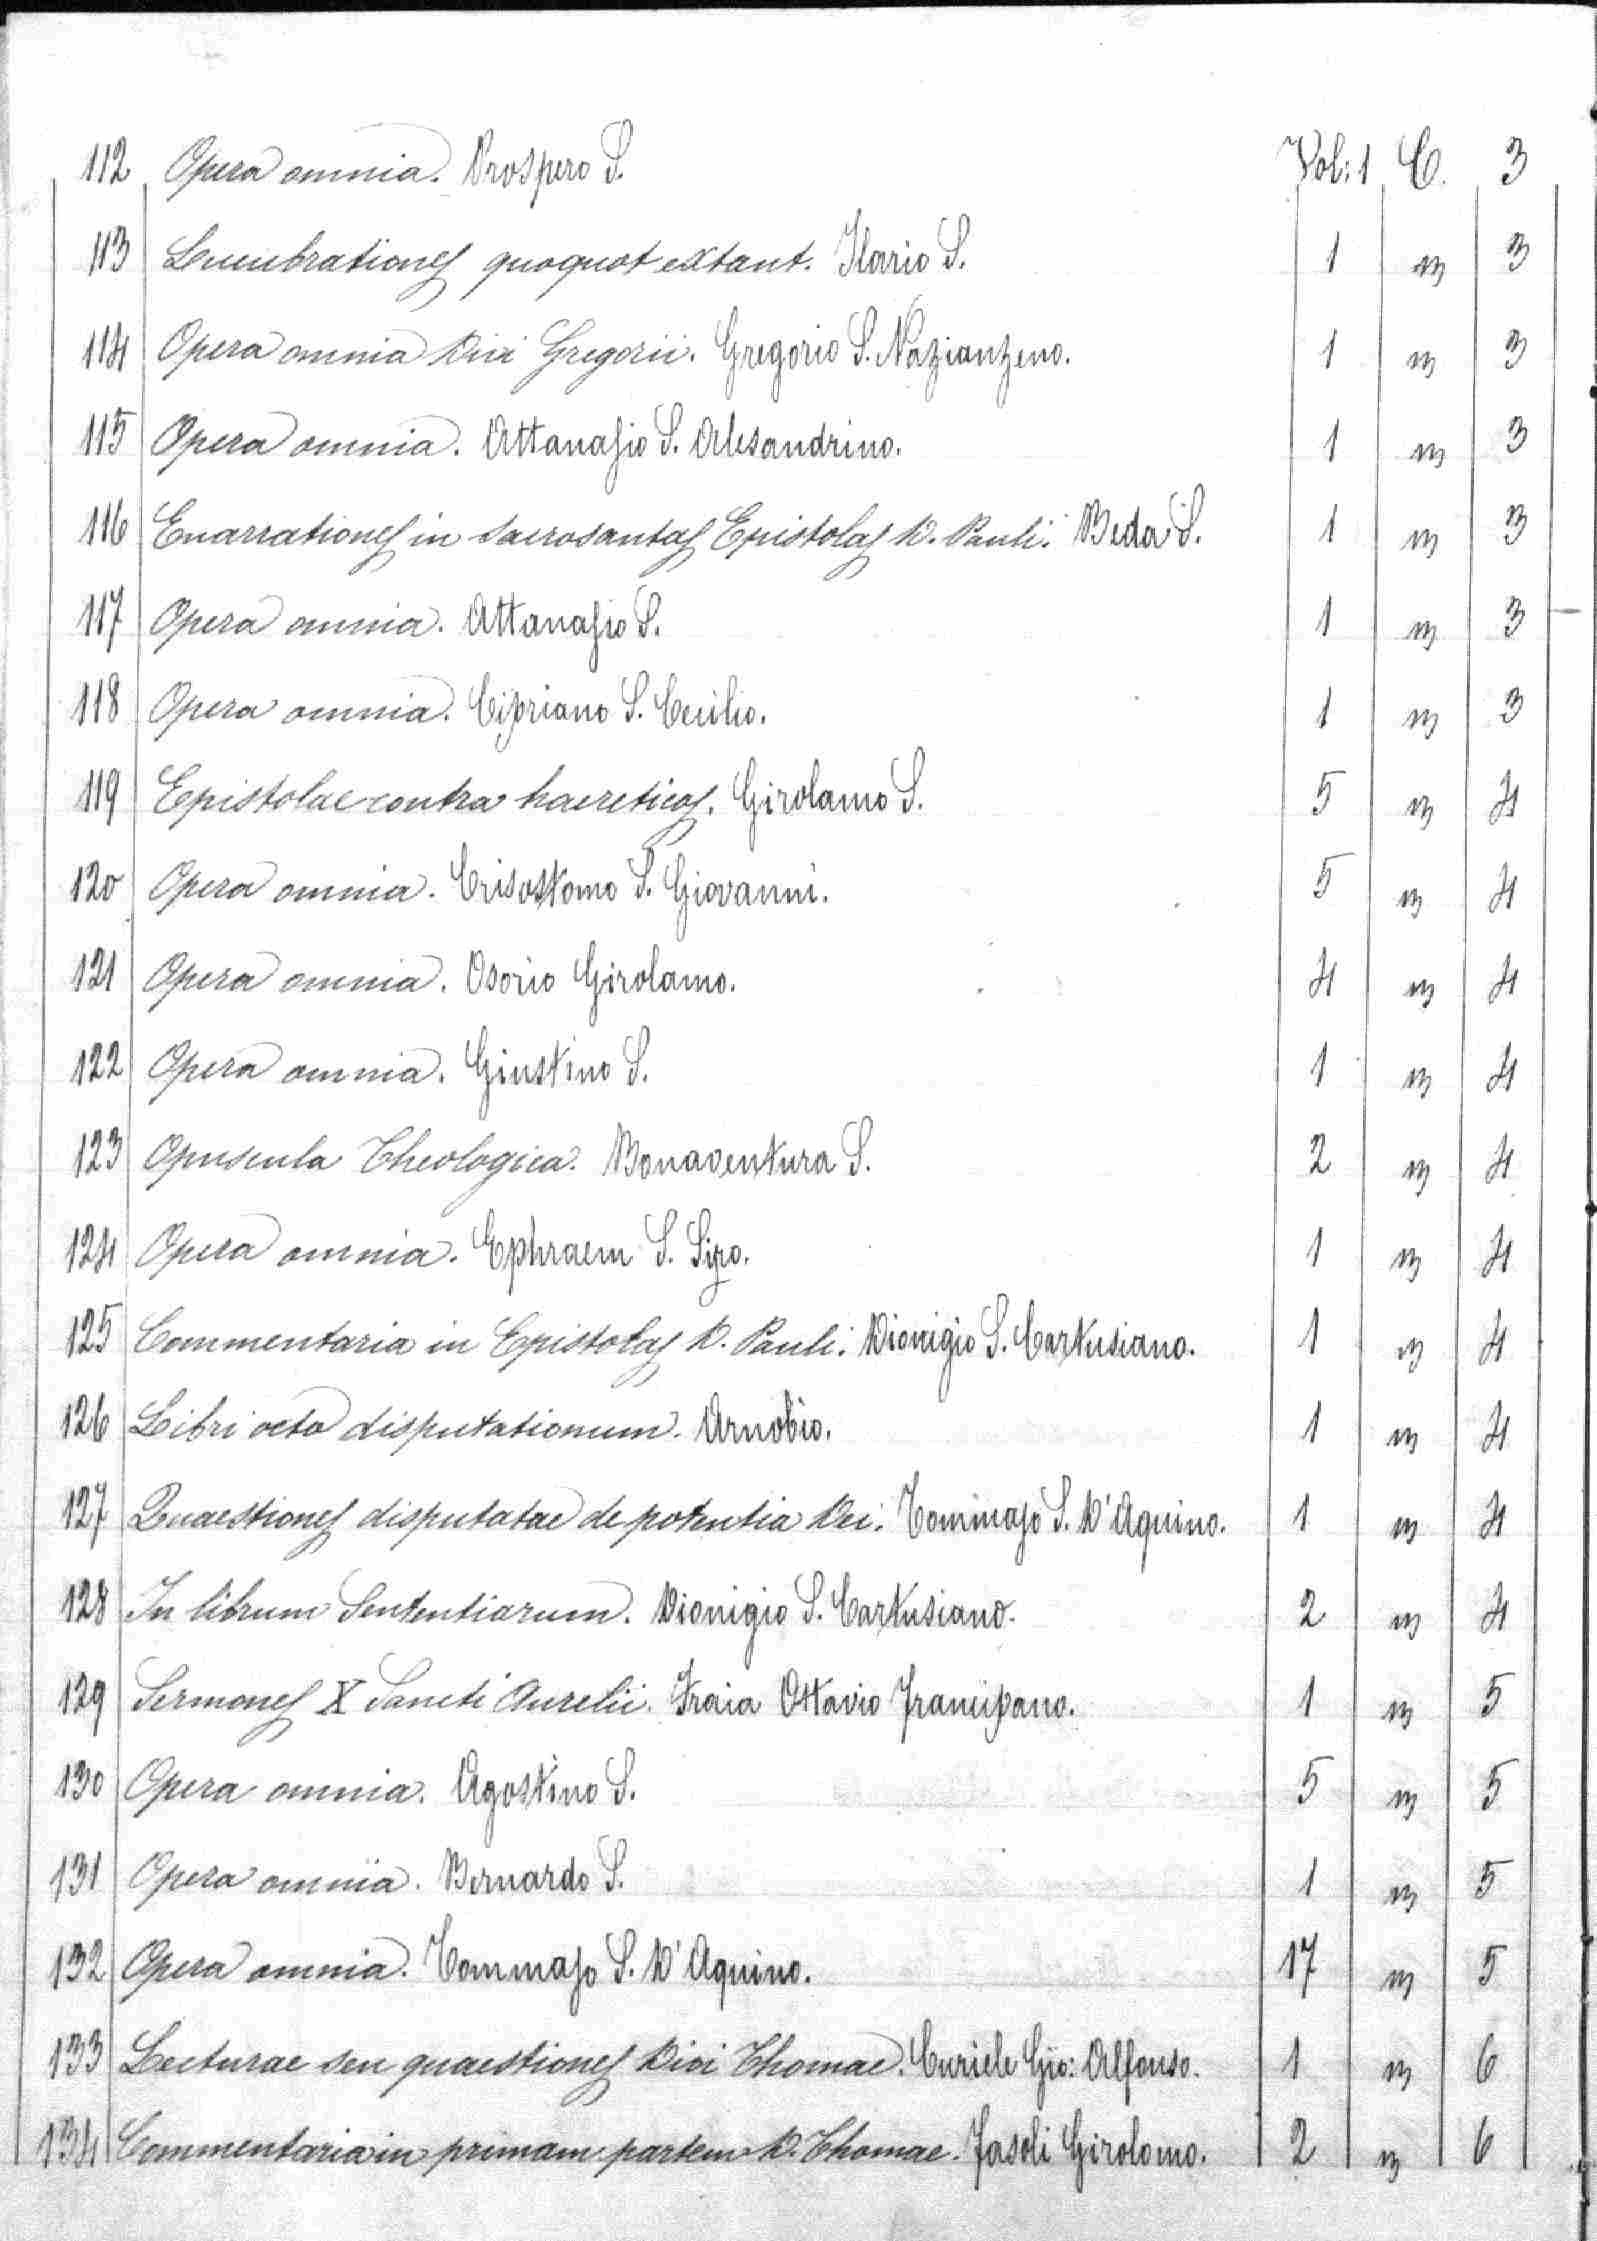 112 Opera omnia. Prospero S. Vol: 1 C. 3
113 Lucubrationes quoquot extant. Ilario S. 1 " 3
114 Opera omnia Divi Gregorii. Gregorio S. Nazianzeno. 1 " 3
115 Opera omnia. Attanasio S. Alesandrino. 1 " 3
116 Enarrationes in sacrosantas Epistolas D. Pauli. Beda S. 1 " 3
117 Opera omnia. Attanasio S. 1 " 3
118 Opera omnia. Cipriano S. Cecilio. 1 " 3
119 Epistolae contra haereticos. Girolamo S. 5 " 4
120 Opera omnia. Crisostomo S. Giovanni. 5 " 4
121 Opera omnia. Osorio Girolamo. 4 " 4
122 Opera omnia. Giustino S. 1 " 4
123 Opuscula Theologica. Bonaventura S. 2 " 4
124 Opera omnia. Ephraem S. Siro. 1 " 4
125 Commentaria in Epistolas D. Pauli. Dionigio S. Cartusiano. 1 " 4
126 Libri octo disputationum. Arnobio. 1 " 4
127 Quaestiones disputatae de potentia Dei. Tommaso S. D'Aquino. 1 " 4
128 In librum Sententiarum. Dionigio S. Cartusiano. 2 " 4
129 Sermones X Sancti Aurelii. Fraia Ottavio Francipano. 1 " 5
130 Opera omnia. Agostino S. 5 " 5
131 Opera omnia. Bernardo S. 1 " 5
132 Opera omnia. Tommaso S. D'Aquino. 17 " 5
133 Lecturae seu quaestiones Divi Thomae. Curiele Gio: Alfonso. 1 " 6
134 Commentaria in primam partem D. Thomae. Fasoli Girolomo. 2 " 6